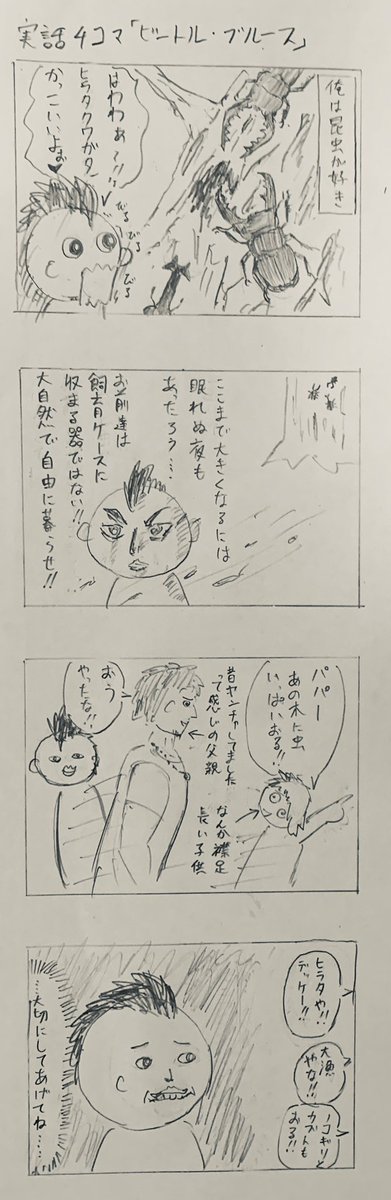 実話4コマ「ビートル・ブルース」
俺は昆虫が好き
はわわぁ〜!!
ヒラタクワガタ
かっこいいよぉ♥
びる
びる
びる
ここまで大きくなるには
眠れぬ夜も
あったろう…
お前達は
飼育ケースに
収まる器ではない!!
大自然で自由に暮らせ!!
パパー
あの木に虫
いっぱいおる!!
昔ヤンチャしてました
って感じの父親
なんか襟足
長い子供
おう
やったな!!
ヒラタや!!
デッケー!!
大漁
やな!!
ノコギリと
カブトも
おる!!
…大切にしてあげてね……